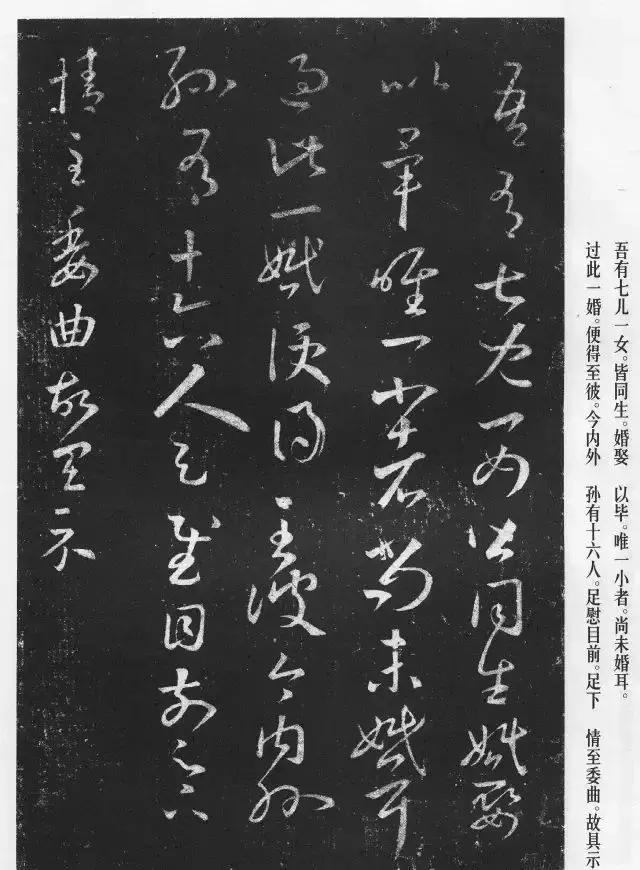 吾有七儿一女。皆同生。婚娶 以毕。唯一小者。尚未婚耳。
过此一婚。便得至彼。今内外 孙有十六人。足慰目前。足下 情至委曲。故具示
吾有七兒一女皆同生婚娶
以畢唯一小者尚未婚耳
過此一婚便得至彼今内外
孫有十六人足慰目前足下
情至委曲故具示